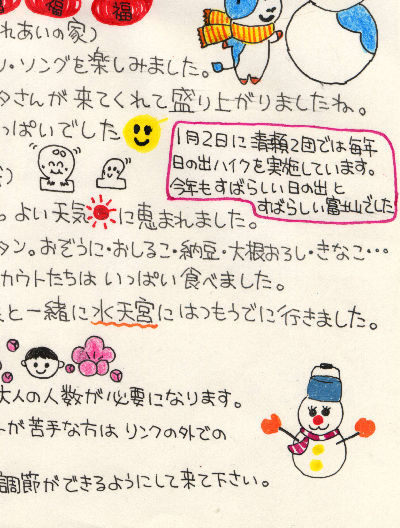 福 福
れあいの家)
リ・ソングを楽しみました。
タさんが来てくれて盛り上がりましたね。
っぱいでした
1月2日に 2団では毎年
日の出ハイクを実施しています。
今年もすばらしい日の出と
すばらしい富士山でした
)
。よい天気に恵まれました。
タン。おぞうに・おしるこ・納豆・大根おろし・きなこ・・・
カウトたちはいっぱい食べました。
と一緒に水天宮にはつもうでに行きました。
大人の人数が必要になります。
が苦手な方はリンクの外での
調節ができるようにして来て下さい。